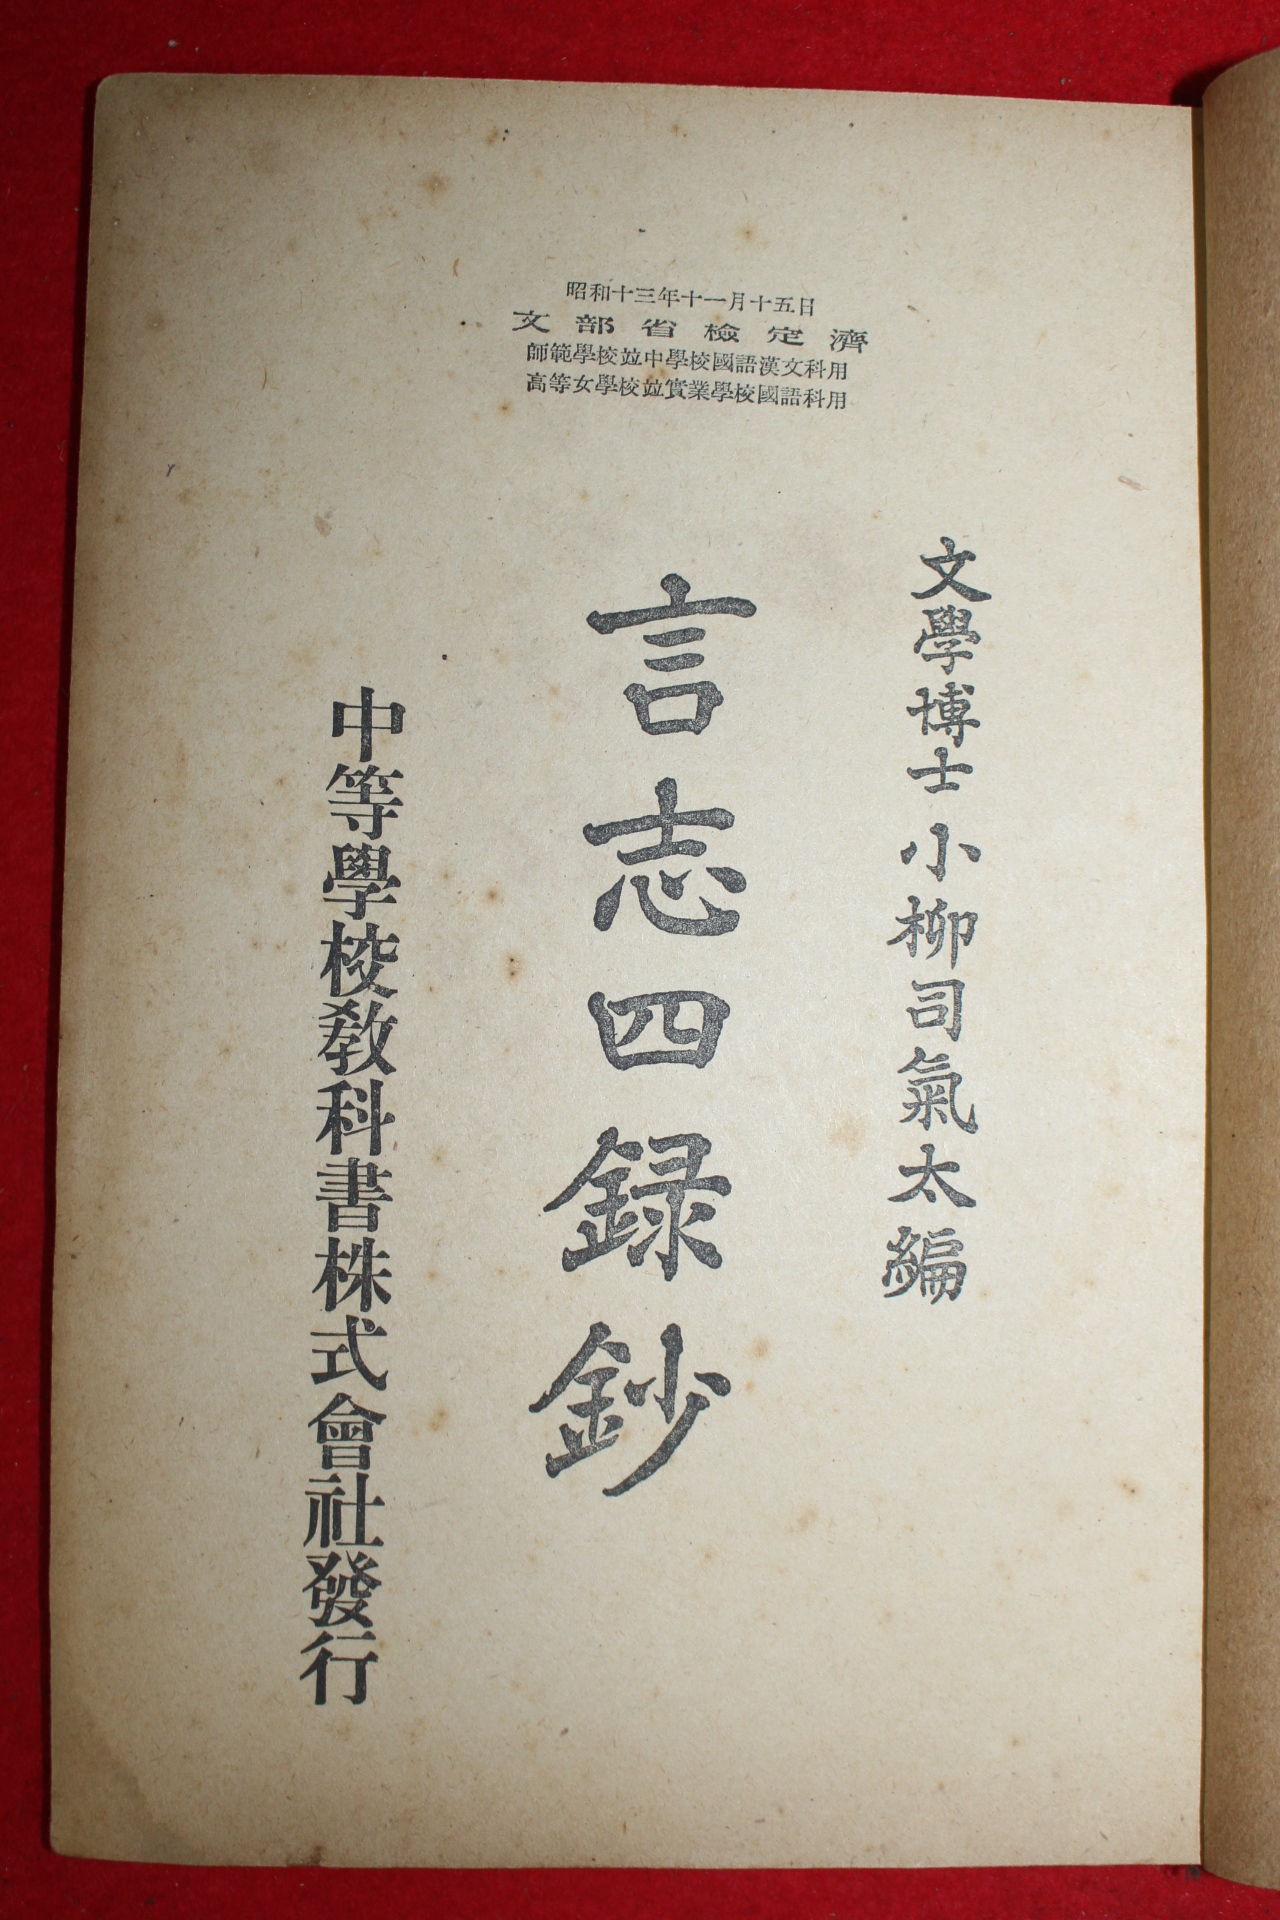 昭和十三年十一月十五日
文部省檢定濟
師範學校竝中學校國語漢文科用
高等女學校竝實業學校國語科用
文學博士小柳司氣太編
言志四録鈔
中等學校教科書株式會社發行